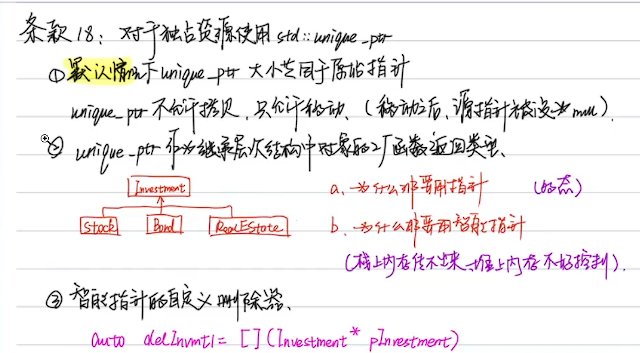 条款18：对于独占资源使用 std::unique_ptr
① 默认情况下 unique_ptr 大小等同于原始指针
unique_ptr 不允许拷贝，只允许移动。（移动之后，源指针被设为 null）.
② unique_ptr 作为继承层次结构中对象的工厂函数返回类型、
Investment
Stock Bond RealEstate
a. 为什么非要用指针 (多态)
b. 为什么非要用智能指针
(栈上内存传不出来，堆上内存不好控制).
③ 智能指针的自定义删除器、
auto delInvmt1 = [](Investment* pInvestment)